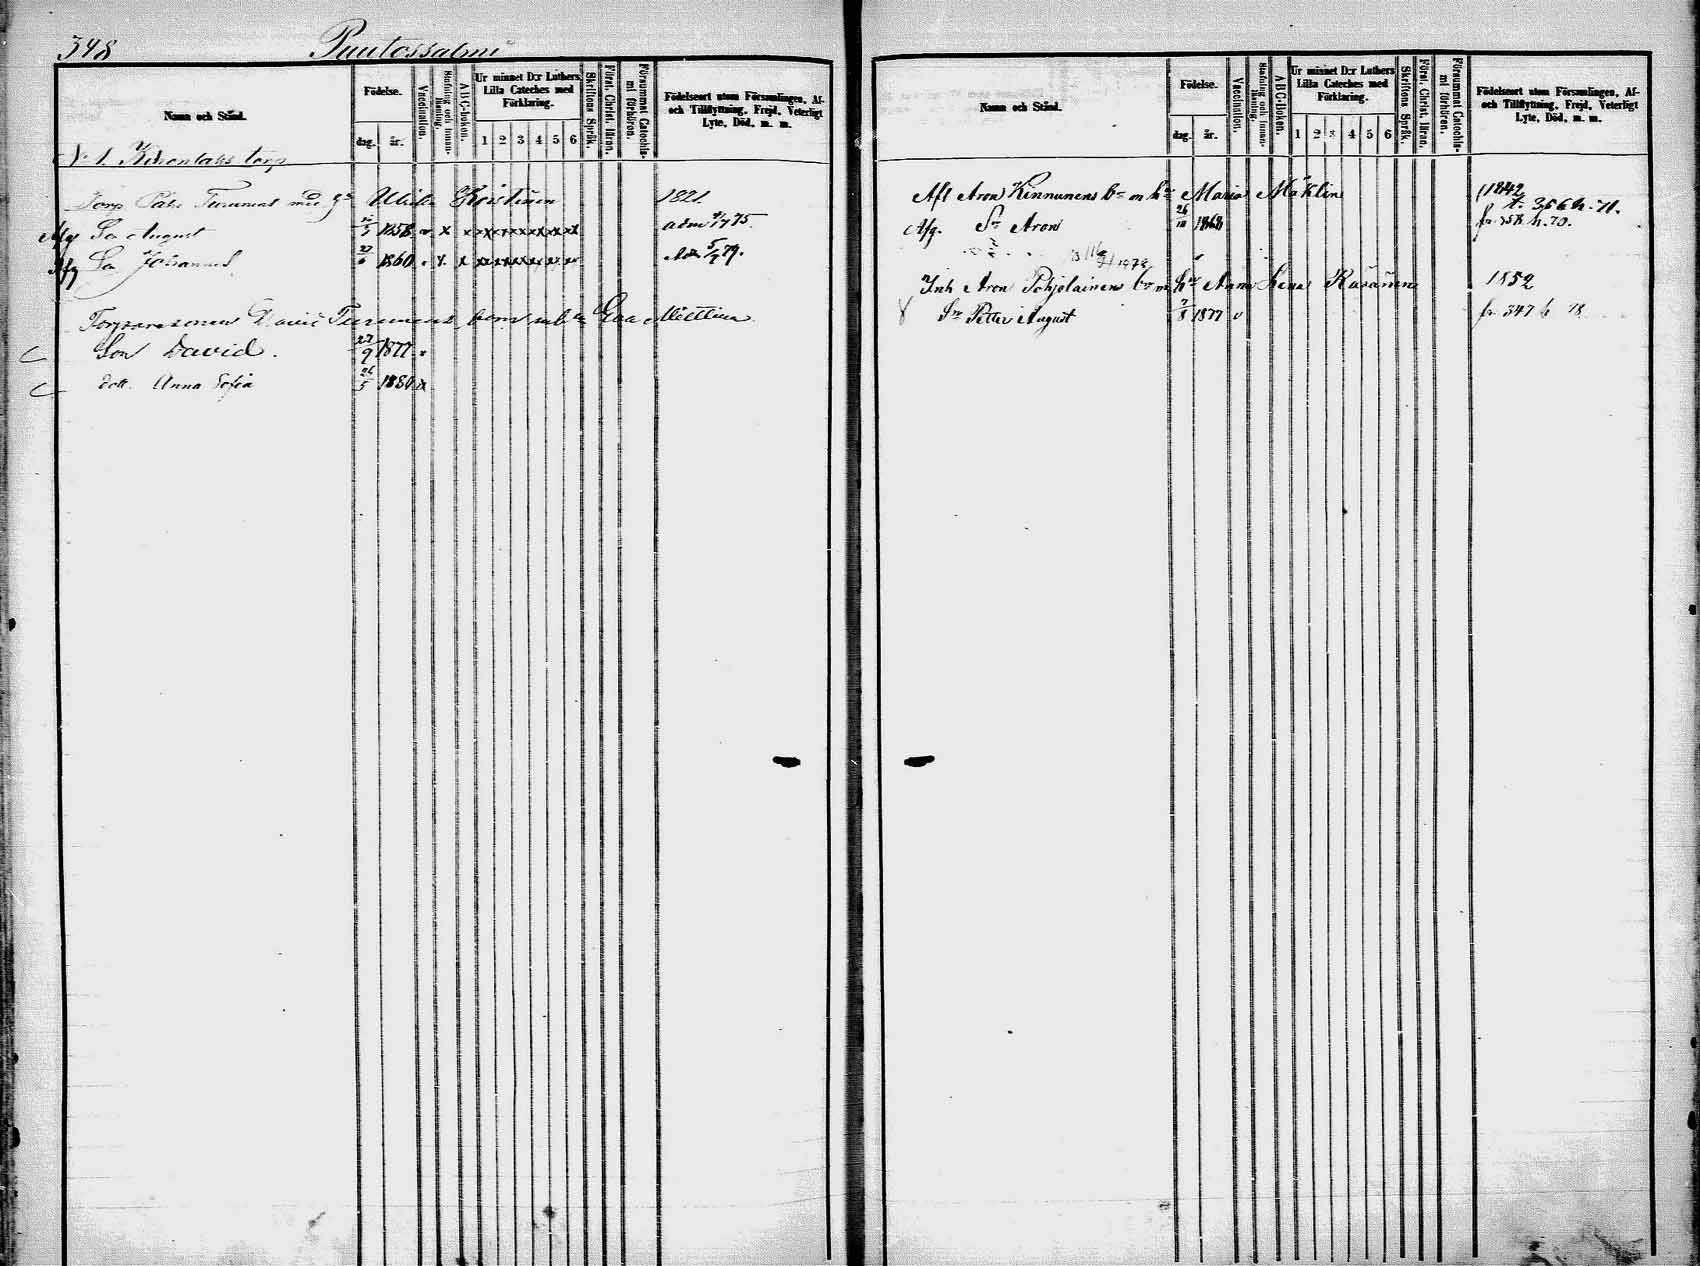 348 Puutossalmi
Namn och Stånd.
Födelse.
dag. år.
Vaccination.
Stafning och Innan-läsning.
ABC-boken.
Ur minnet D:r Luthers Lilla Cateches med Förklaring.
1 2 3 4 5 6
Skriftens Språk.
Förståt. Christ. läran.
Försummat Catechis-mi förhören.
Födelseort utom Församlingen, Af- och Tillflyttning, Frejd, Veterligt Lyte, Död, m. m.
N:o 1. torp
Torp Turunens med Kristiina 1821
Afg So August 1858 x x x x x x x x x adm 75.
Afg So Johannes 27/6 1860 x x x x x x x x Adm 5/7 79.
Torparesonen David Turunens barn Eva Miettinen
Son David. 27/9 1877
dott. Anna Sofia 26/5 1880
Namn och Stånd.
Födelse.
dag. år.
Vaccination.
Stafning och Innan-läsning.
ABC-boken.
Ur minnet D:r Luthers Lilla Cateches med Förklaring.
1 2 3 4 5 6
Skriftens Språk.
Förståt. Christ. läran.
Försummat Catechis-mi förhören.
Födelseort utom Församlingen, Af- och Tillflyttning, Frejd, Veterligt Lyte, Död, m. m.
Afl Aron Kinnunens bn m hu Maria Mäklin 1842
t. 366 h. 71.
Afg. Sn Aron 26/10 1868 fr. 358 h. 70.
Inh Aron Pohjolainens bn m hu Anna Lena Räsänen 1852
Sn Petter August 7/8 1877 v fr. 347 h 78